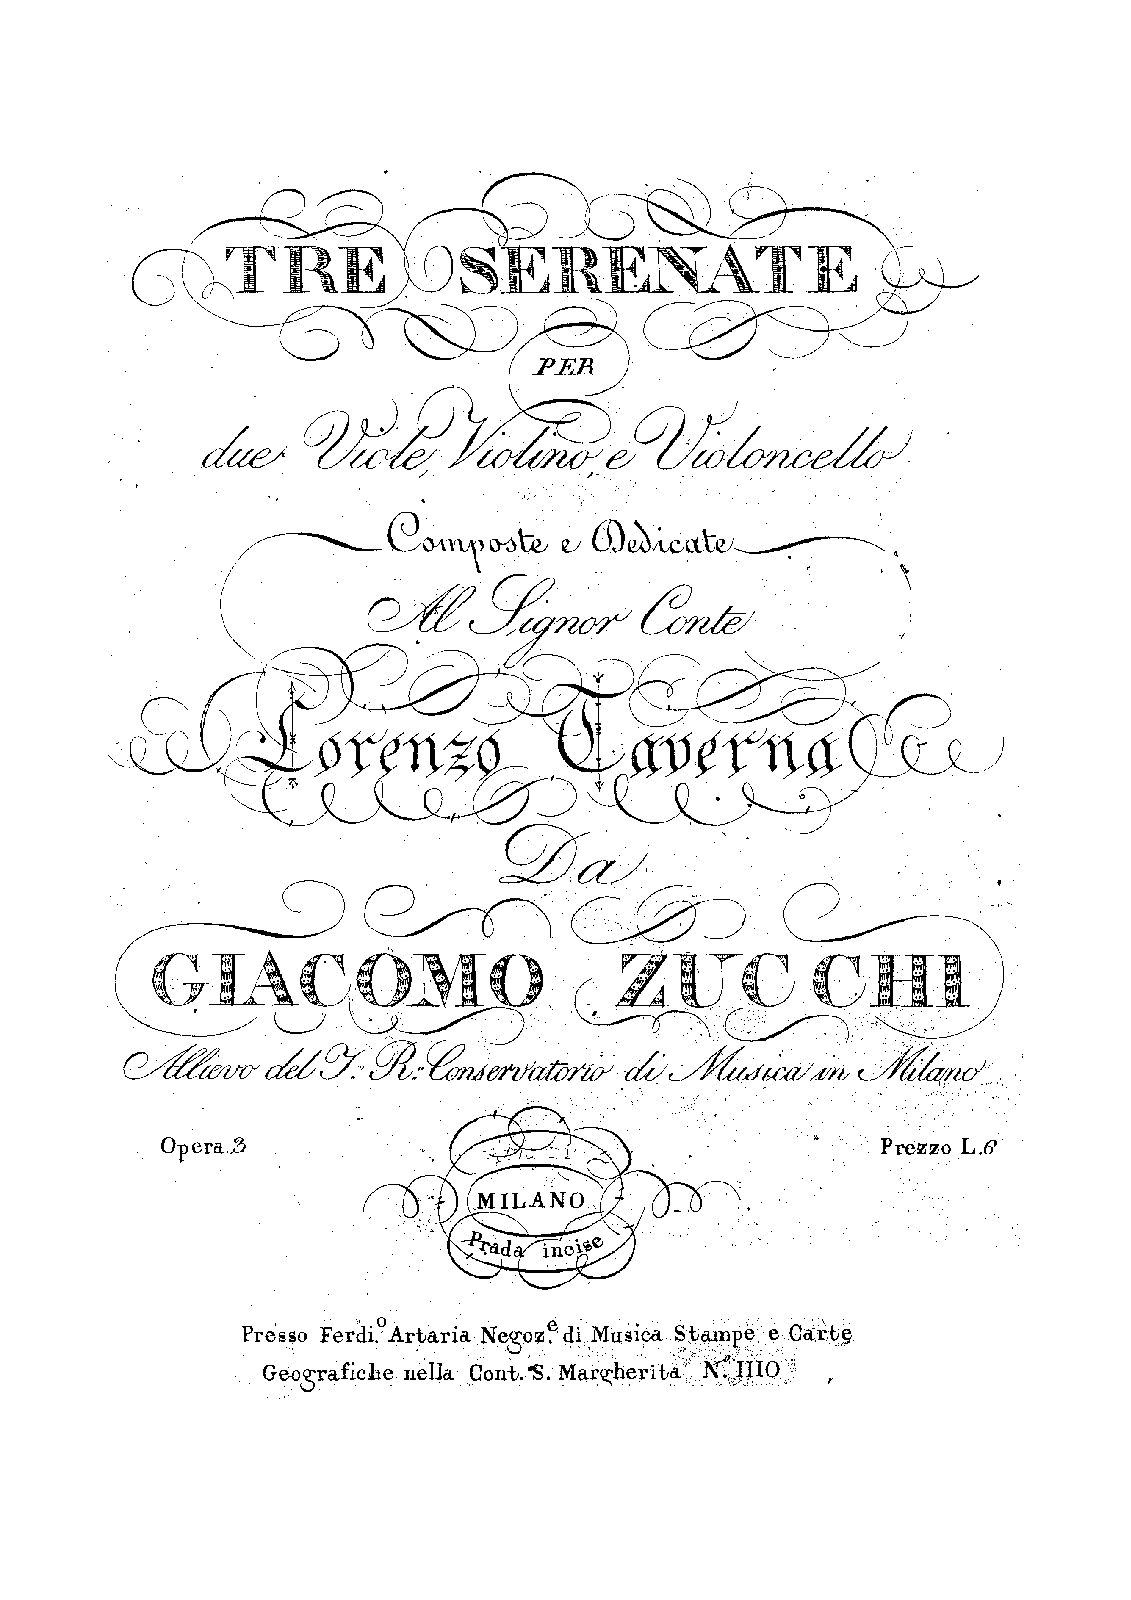 TRE SERENATE
PER
due Viole, Violino, e Violoncello
Composte e Dedicate
Al Signor Conte
Lorenzo Taverna
Da
GIACOMO ZUCCHI
Allievo del I. R. Conservatorio di Musica in Milano
Opera.3 Prezzo L.6
MILANO
Prada incise
Presso Ferdi.o Artaria Negoz.e di Musica Stampe e Carte
Geografiche nella Cont. S. Margherita N.o 1110